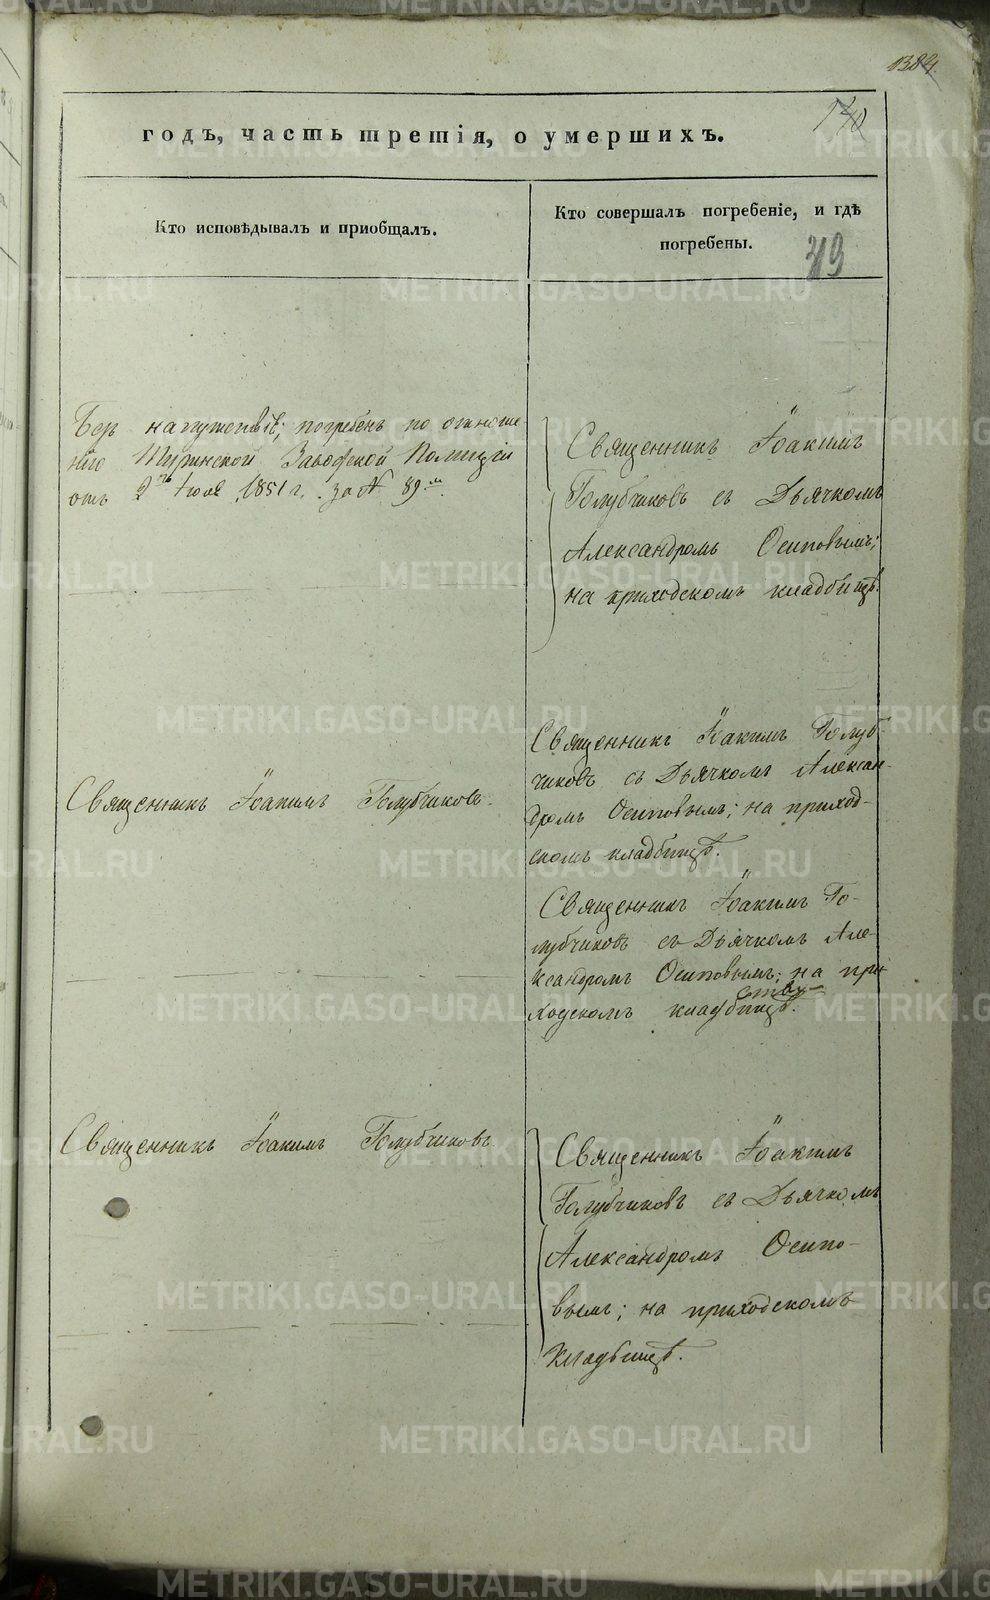 1384.
140
годъ, часть третія, о умершихъ.
Кто исповѣдывалъ и приобщалъ.
Кто совершалъ погребеніе, и гдѣ
погребены.
Безъ напутствія; погребенъ по отноше
нію Туринской Заводской Полиціи
отъ 9го Іюля 1851 г. за № 89.м
Священникъ Іоакимъ
Голубчиковъ съ Дьячкомъ
Александромъ Осиповымъ;
на приходскомъ кладбищѣ.
Священникъ Іоакимъ Голубчиковъ.
Священникъ Іоакимъ Голуб-
чиковъ съ Дьячкомъ Алексан-
дромъ Осиповымъ; на приход-
скомъ кладбищѣ.
Священникъ Іоакимъ Го-
лубчиковъ съ Дьячкомъ Але-
ксандромъ Осиповымъ; на при
ходскомъ кладбищѣ.
Священникъ Іоакимъ Голубчиковъ
Священникъ Іоакимъ
Голубчиковъ съ Дьячкомъ
Александромъ Осипо-
вымъ; на приходскомъ
кладбищѣ.
METRIKI.GASO-URAL.RU